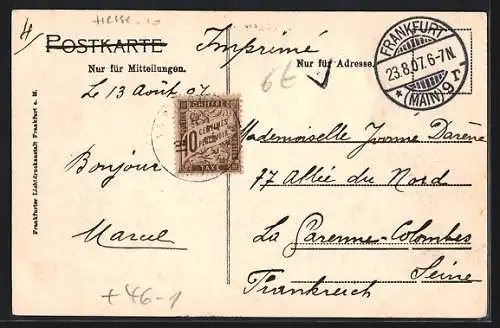 HESSE
4)
POSTKARTE
Imprimé
Nur für Mitteilungen.
Nur für Adresse.
6E
FRANKFURT
23.8.07.6-7N.
* (MAIN) 9 r
Le 13 Août 07
CHIFFRE
10
CENTIMES
À PERCEVOIR
TAXE
Bonjour
Marcel
Mademoiselle Yvonne Darène
77 Allée du Nord
La Garenne-Colombes
Seine
Frankreich
Frankfurter Lichtdruckanstalt Frankfurt a. M.
+46-1